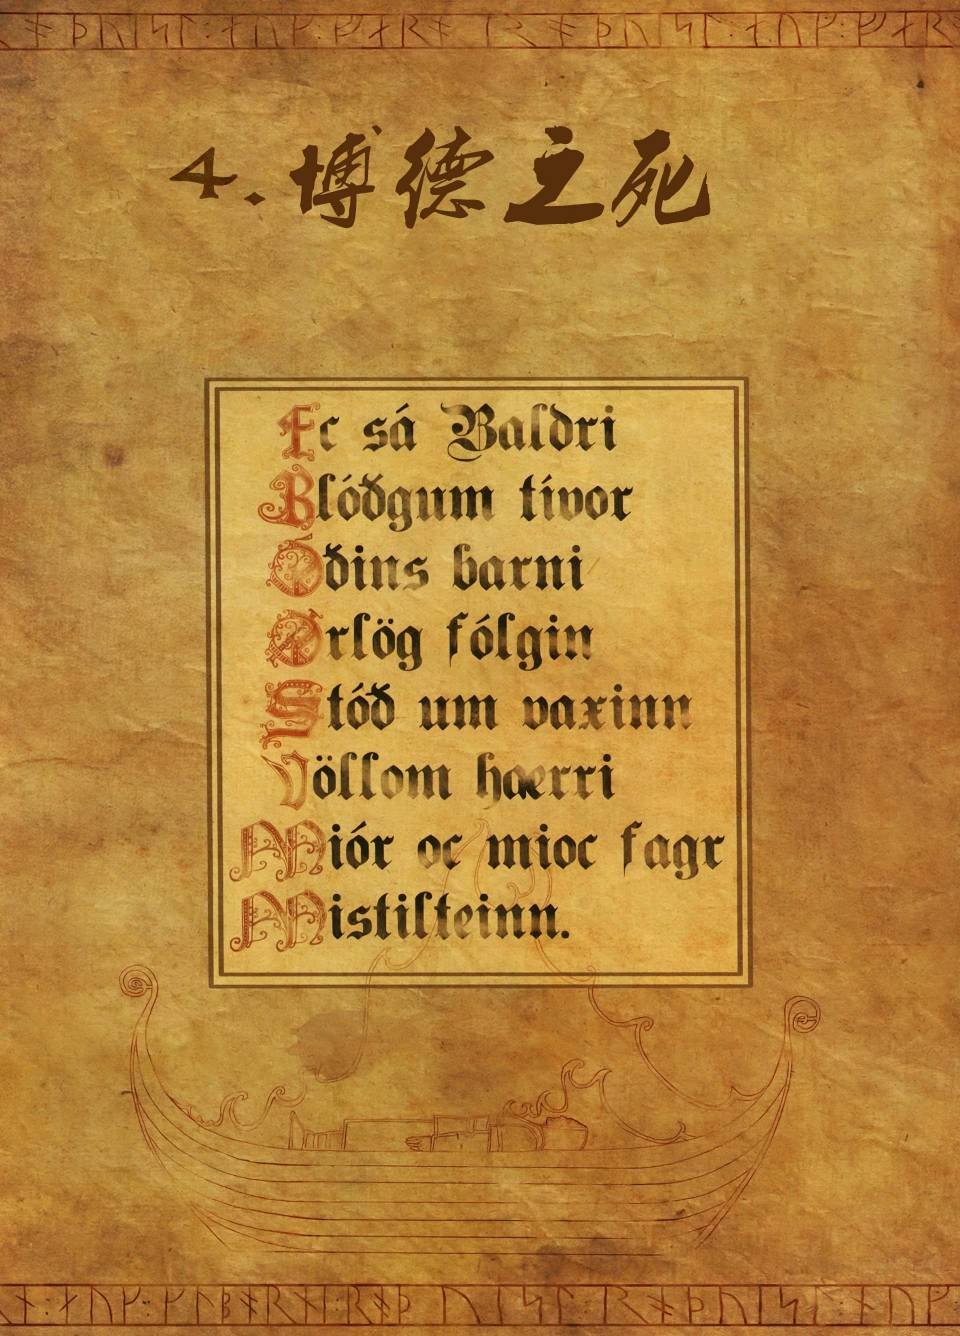 4.博德之死
Ec sá Baldri
Blóðgum tívor
Óðins barni
Ørlög fólgin
Stóð um vaxinn
Völlom hærri
Miór oc mioc fagr
Mistilteinn.